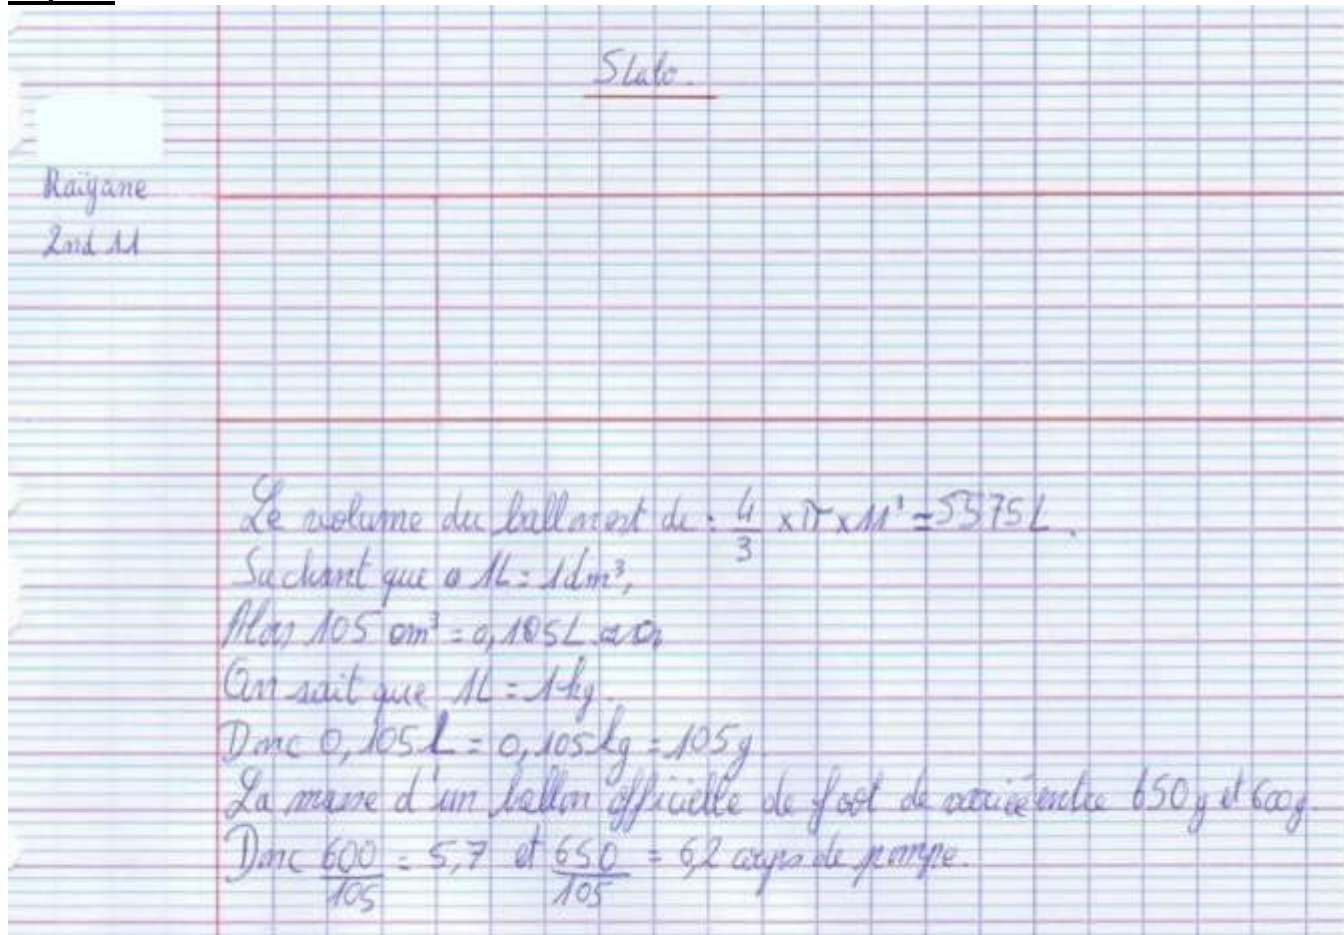 Raïyane
2nd 11
Le volume du ballon est de : 4/3 x π x 11³ = 5575L.
Sachant que 1L = 1dm³,
Alors 105 cm³ = 0,105L
On sait que 1L = 1kg.
Donc 0,105L = 0,105kg = 105g.
La masse d'un ballon officielle de foot de varié entre 650g et 600g.
Donc 600/105 = 5,7 et 650/105 = 6,2 coups de pompe.